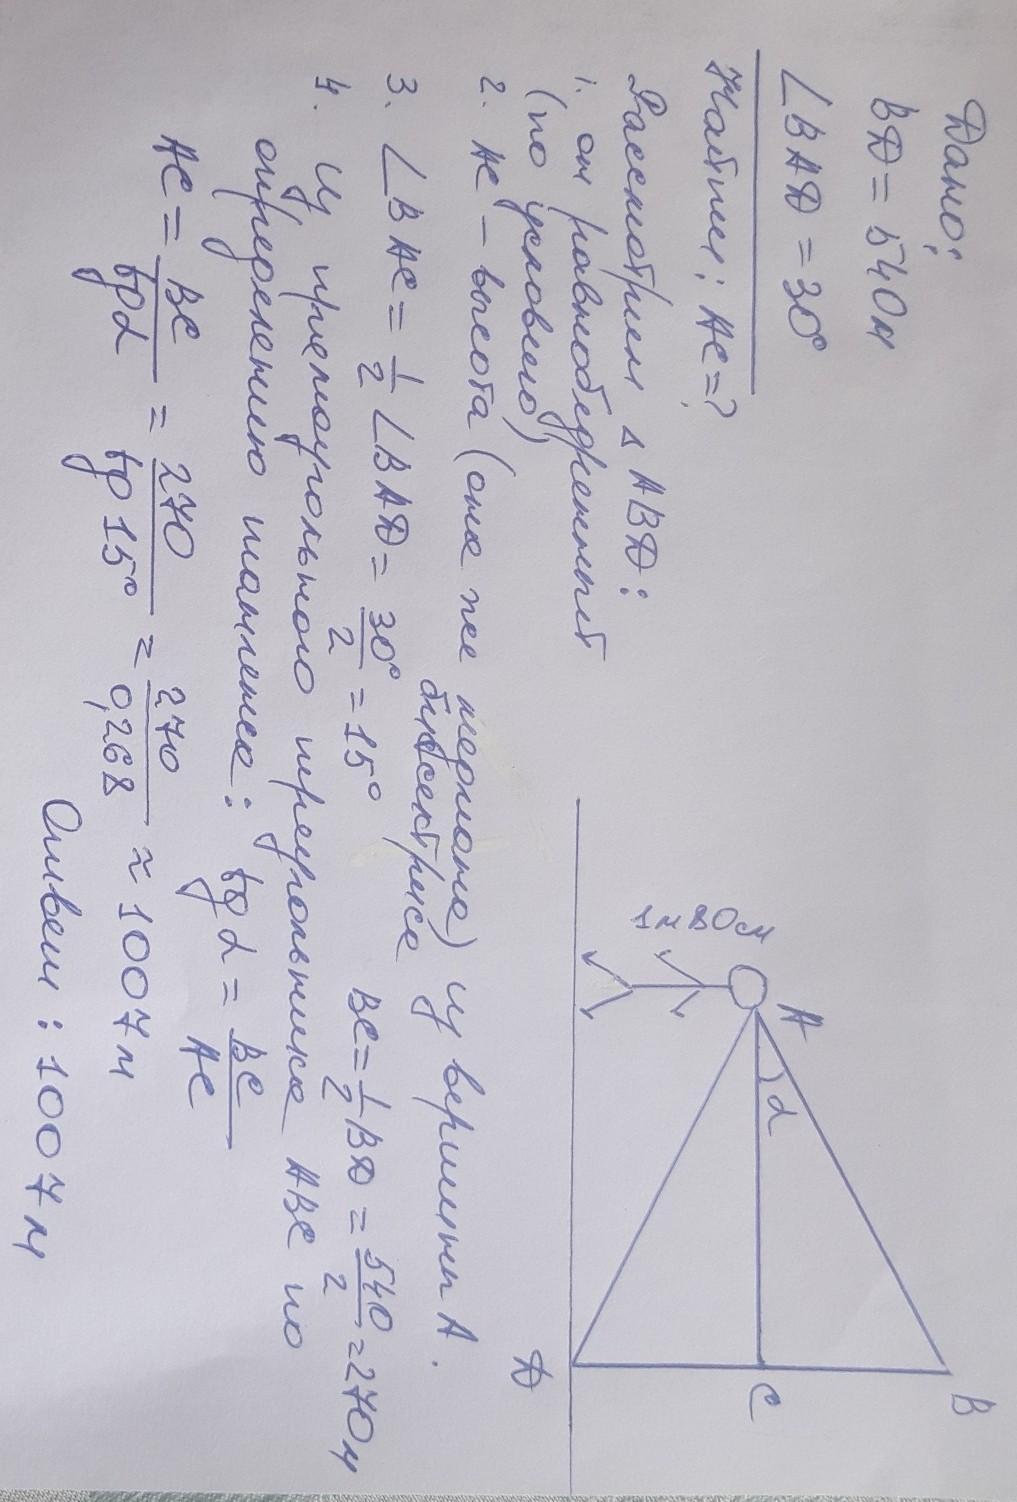 Дано:
BD = 540м
∠BAD = 30°
Найти: AC = ?
Рассмотрим △ ABD:
1. он равнобедренный
(по условию)
2. AC – высота (она же медиана) из вершины A.
биссектриса
3. ∠BAC = 1/2 ∠BAD = 30°/2 = 15° BC = 1/2 BD = 540/2 = 270м
4. Из прямоугольного треугольника ABC по
определению тангенса: tg α = BC/AC
AC = BC/tg α = 270/tg 15° = 270/0,268 ≈ 1007м
Ответ: 1007м
1м80см
A
α
B
C
D